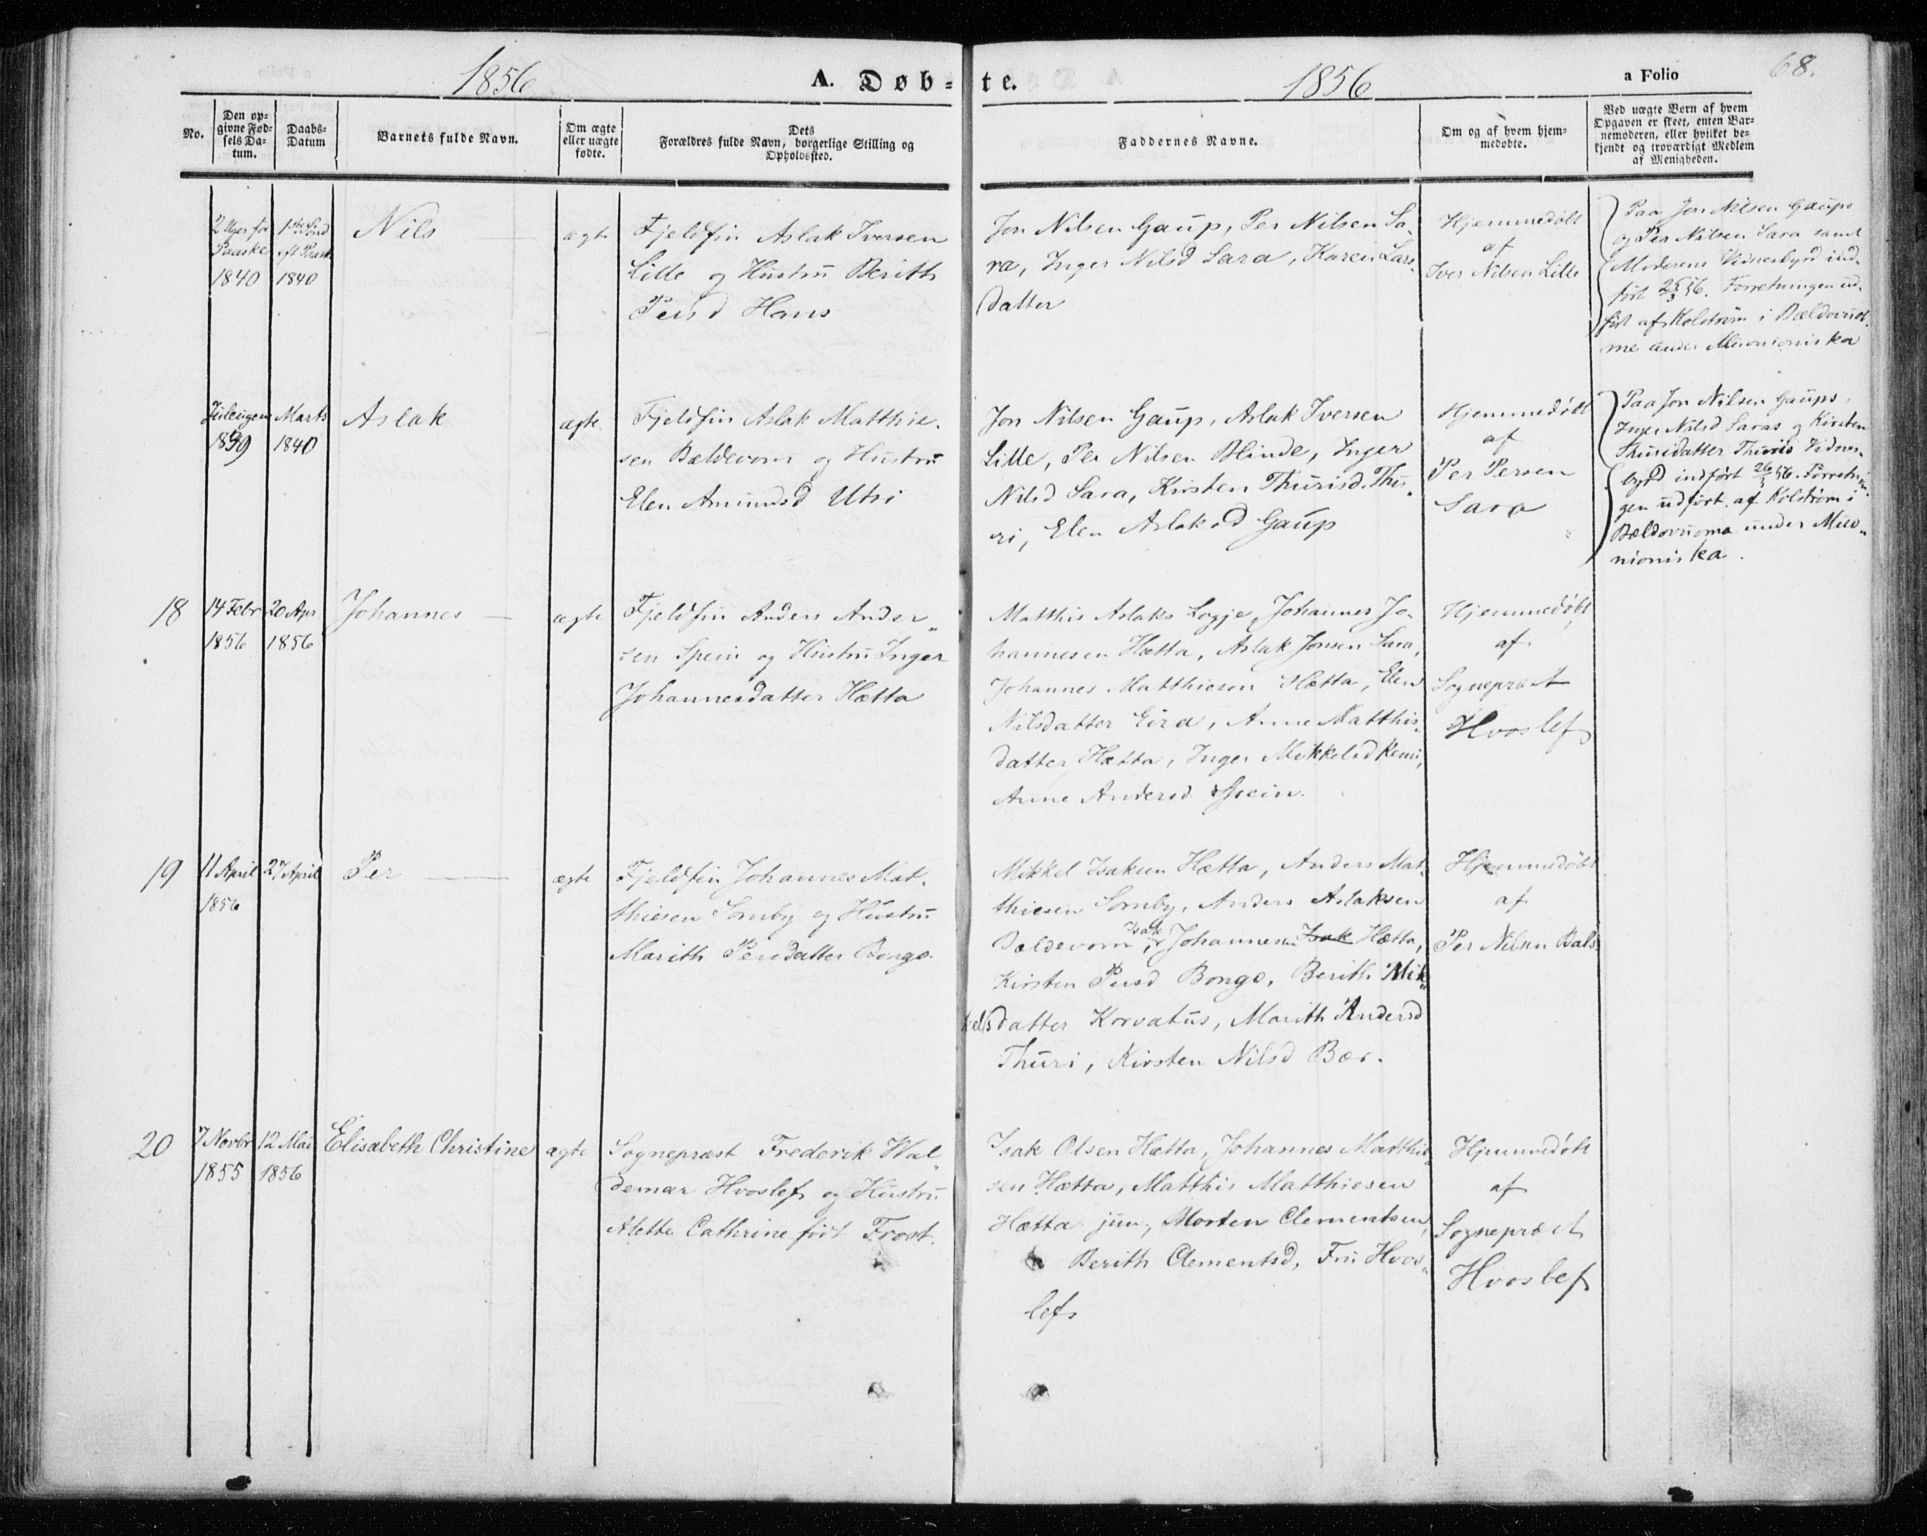 1856 A. Døb- te. 1856 a Folio 68.
No.
Den op-
givne Fød-
sels Da-
tum.
Daabs-
Datum
Barnets fulde Navn.
Om ægte
eller uægte
fødte.
Dets
Forældres fulde Navn, borgerlige Stilling og
Opholdssted.
Faddernes Navne.
Om og af hvem hjem-
medøbte.
Ved uægte Børn af hvem
Opgaven er skeet, enten Bar-
nemoderen, eller hvilket be-
kjendt og troværdigt Medlem
af Menigheden.
2 Uger før
Paaske
1840
1ste Sønd
eft Paask
1840
Nils
ægte
Fjeldfin Aslak Iversen
Lille og Hustru Berith
Persd Hans
Jon Nilsen Gaup, Per Nilsen Sa-
ra, Inger Nilsd Sara, Karen Lars-
datter
Hjemmedøbt
af
Iver Nilsen Lille
Paa Jon Nilsen Gaups
og Per Nilsen Sara samt
Moderens Vidnesbyrd ind-
ført 26/3 56. Forretningen ud-
ført af Kolstrøm i Bældovuo-
me under Muonioniska
Juleugen
1839
Marts
1840
Aslak
ægte
Fjeldfin Aslak Matthie-
sen Bældevom og Hustru
Elen Amundsd Utsi
Jon Nilsen Gaup, Aslak Iversen
Lille, Per Nilsen Blinde, Inger
Nilsd Sara, Kirsten Thurisd. Thu-
ri, Elen Aslaksd Gaup
Hjemmedøbt
af
Per Persen
Sara
Paa Jon Nilsen Gaups,
Inger Nilsd Saras og Kirsten
Thurisdatter Thuris Vidnes-
byrd indført 26/3 56. Forretnin-
gen udført af Kolstrøm i
Bældovuoma under Muo-
nioniska.
18
14 Febr
1856
20 Apr
1856
Johannes
ægte
Fjeldfin Anders Ander-
sen Spein og Hustru Inger
Johannesdatter Hætta
Matthis Aslaks Logje, Johannes Jo-
hannesen Hætta, Aslak Jonsen Sara,
Johannes Matthiesen Hætta, Elen
Nilsdatter Eira, Anne Matthis-
datter Hætta, Inger Mikkelsd Kemi,
Anne Andersd Spein.
Hjemmedøbt
af
Sognepræst
Hvoslef
19
11 April
1856
27 April
Per
ægte
Fjeldfin Johannes Mat-
thiesen Somby og Hustru
Marith Persdatter Bongo.
Mikkel Isaksen Hætta, Anders Mat-
thiesen Somby, Anders Aslaksen
Bældevom, Isak Johannesen Isak Hætta,
Kirsten Persd Bongo, Berith Mik-
kelsdatter Korvatus, Marith Andersd
Thuri, Kirsten Nilsd Bær.
Hjemmedøbt
af
Per Nilsen Bals
20
7 Novbr
1855
12 Mai
1856
Elisabeth Christine
ægte
Sognepræst Frederik Wal-
demar Hvoslef og Hustru
Alette Cathrine født Frost.
Isak Olsen Hætta, Johannes Matthie-
sen Hætta, Matthis Matthiesen
Hætta jun, Morten Clementsen,
Berith Clementsd, Fru Hvos-
lef
Hjemmedøbt
af
Sognepræst
Hvoslef